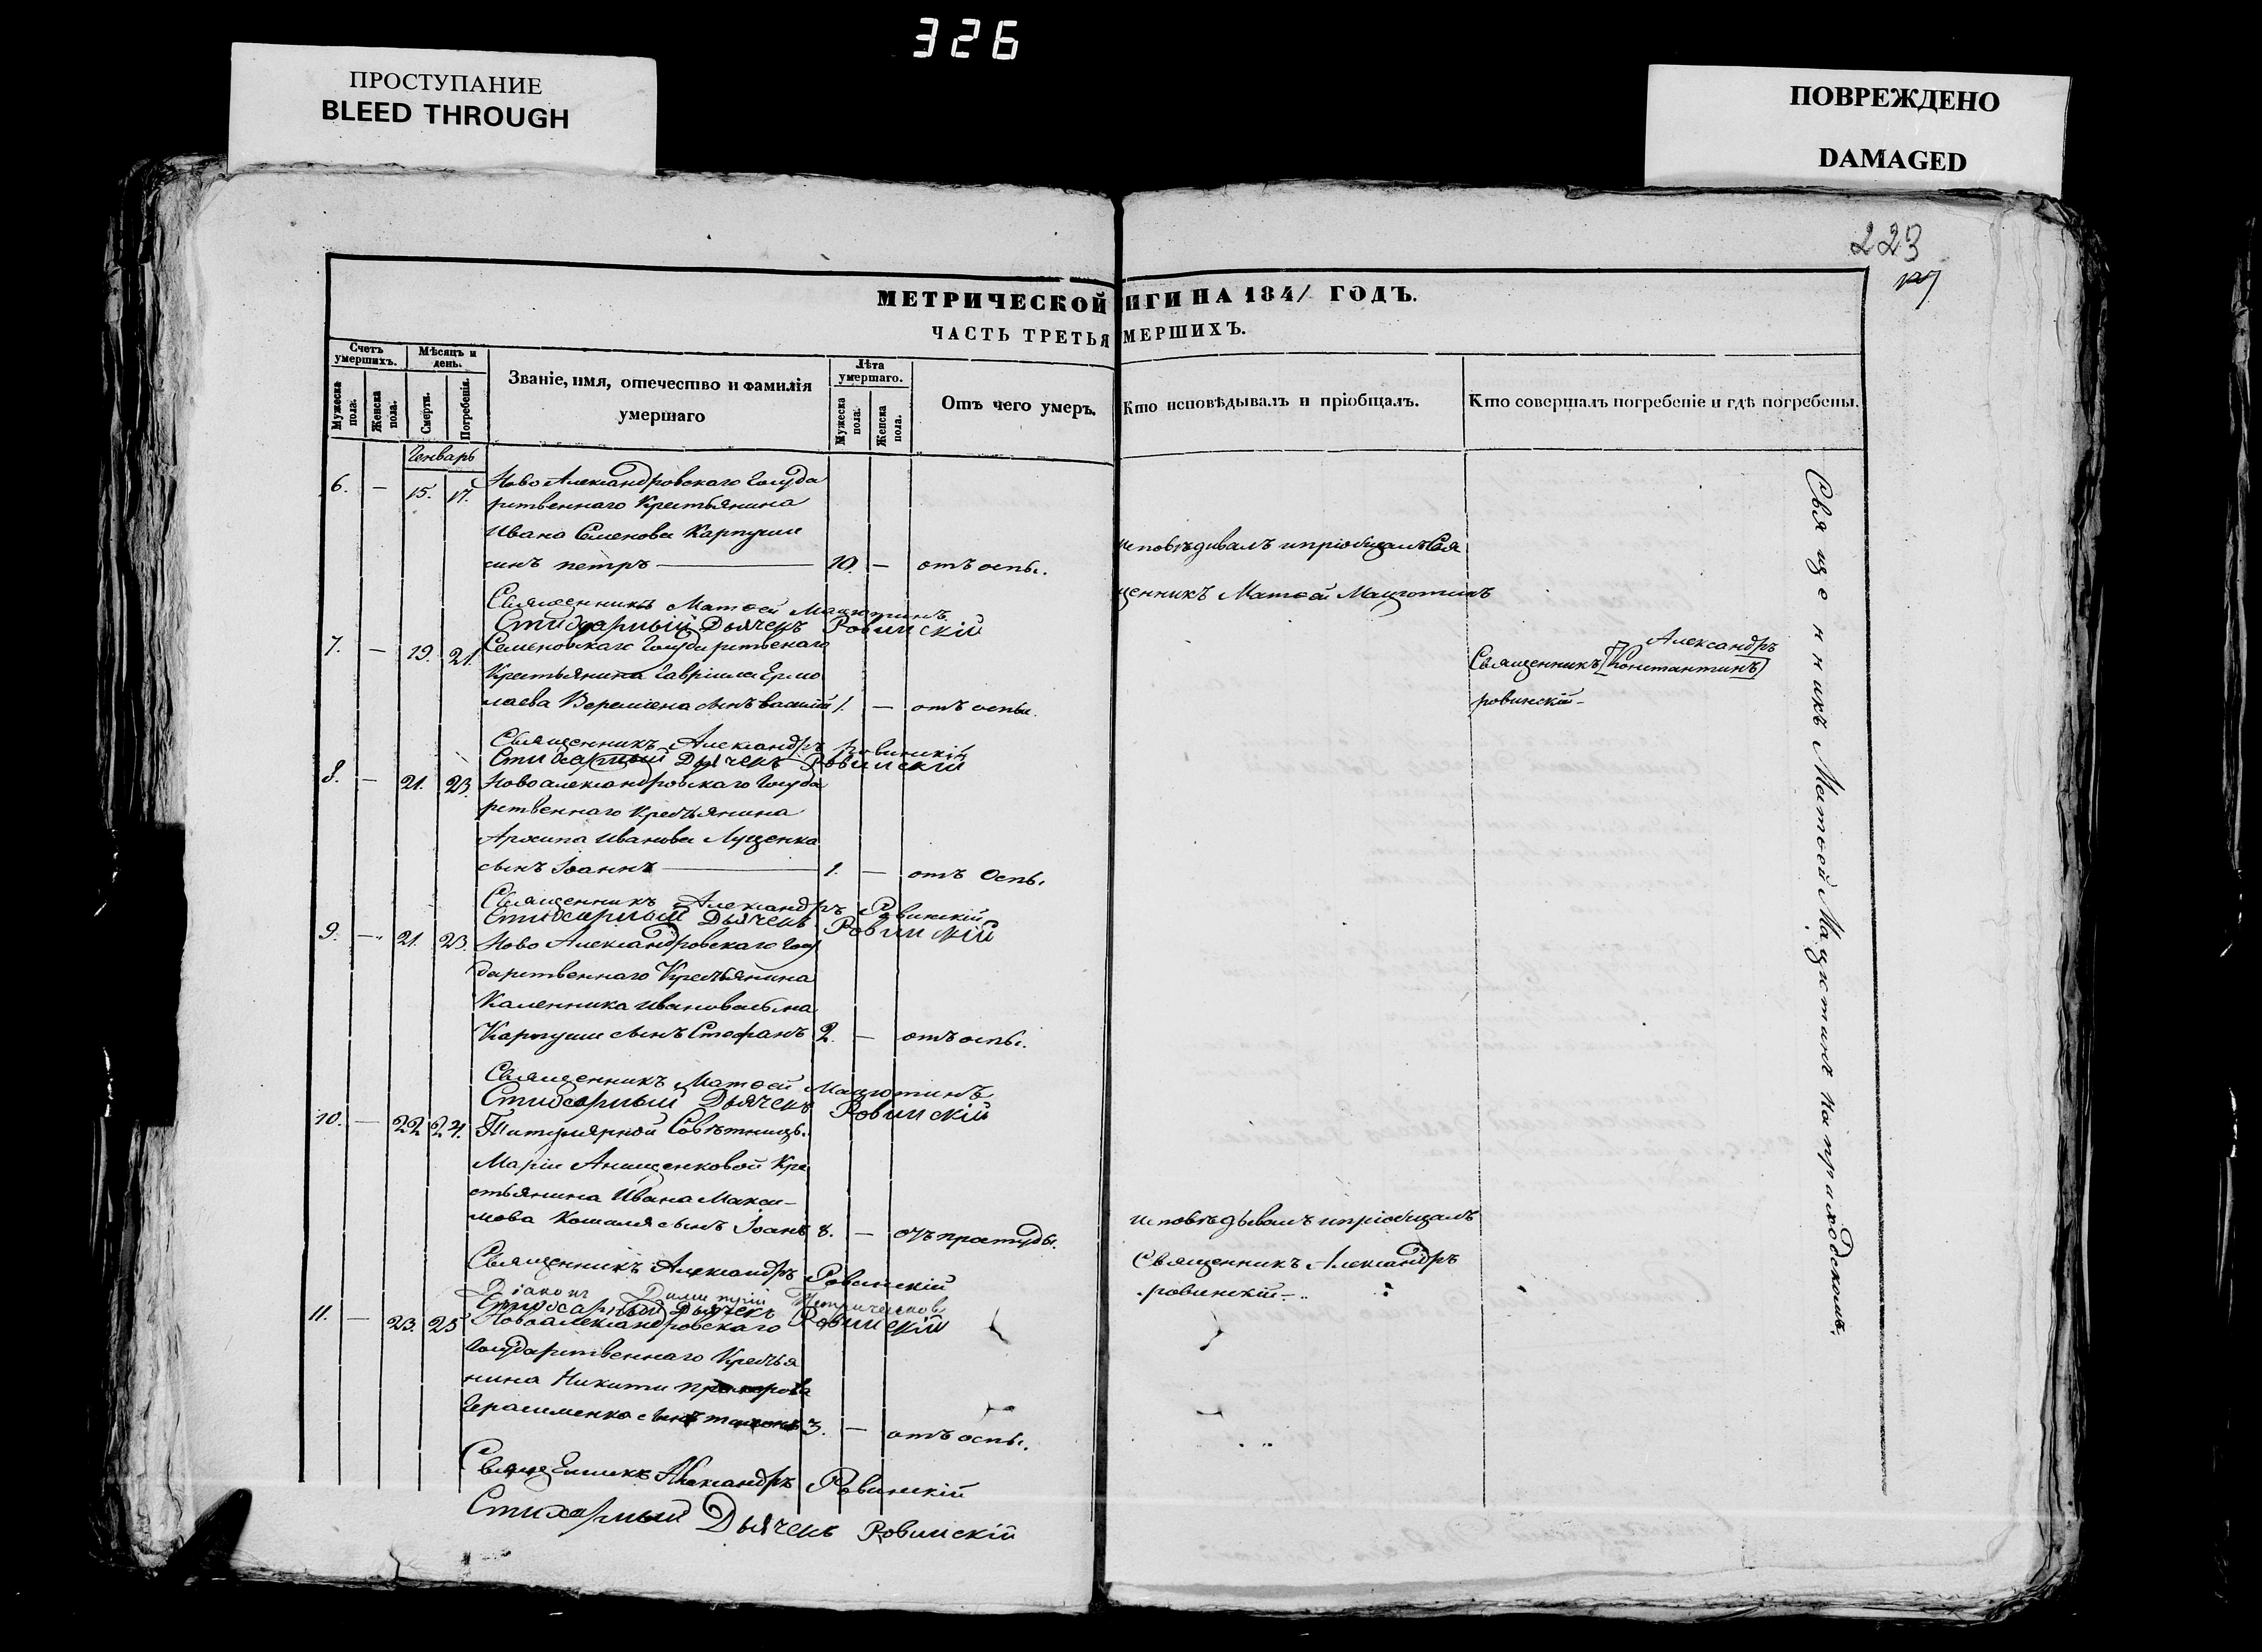 326
ПРОСТУПАНИЕ
BLEED THROUGH
ПОВРЕЖДЕНО
DAMAGED
223
МЕТРИЧЕСКОЙ ИГИ НА 1841 ГОДЪ.
ЧАСТЬ ТРЕТЬЯ МЕРШИХЪ.
Счетъ умершихъ.
Мужеска пола.
Женска пола.
Мѣсяцъ и день.
Смерти.
Погребенія.
Званіе, имя, отечество и фамилія
умершаго
Лѣта умершаго.
Мужеска пола.
Женска пола.
Отъ чего умеръ.
Кто исповѣдывалъ и пріобщалъ.
Кто совершалъ погребеніе и гдѣ погребены.
Генварь
6. — 15. 17. Ново Александровскаго Госуда
рственнаго Крестьянина
Ивана Семенова Карпуши
сынъ петръ — 10. — отъ оспы.
исповѣдивалъ и пріобщалъ Свя
щенникъ Матѳей Мацютинъ
Священникъ Матѳей Мацютинъ
Стихарный Дьячекъ Ровинскій
7. — 19. 21. Семеновскаго Государственаго
Крестьянина Гавріила Ермо
лаева Веремiена сынъ василій 1. — отъ оспы.
Александръ
Священникъ Константинъ
ровинскій
Священникъ Александръ Ровинскій
Стихарный Дьячекъ Ровинскій
8. — 21. 23. Новоалександровскаго Госуда
рственнаго Крестьянина
Архипа Иванова Луценка
сынъ Іоаннъ — 1. — отъ Оспы
Священникъ Александръ Ровинскій
Стихарный Дьячекъ Ровинскій
9. — 21. 23. Ново Александровскаго Госу
дарственнаго Крестьянина
Каленника Иванова сына
Карпуши сынъ Стефанъ 2. — отъ оспы.
Священникъ Матѳей Мацютинъ
Стихарный Дьячекъ Ровинскій
10. — 22 24. Титулярной Совѣтницы
Маріи Анищенковой Кре
стьянина Ивана Макси-
мова Кошеля сынъ Іоанъ 8. — отъ простуды.
исповѣдывалъ и пріобщалъ
Священникъ Александръ
ровинскій
Священникъ Александръ Ровинскій
Діаконъ Димитрій
Стихарный Дьячекъ Ровинскій
11. — 23. 25 Новоалександровскаго
Государственнаго Крестья
нина Никити прохорова
Герасименка сынъ 3. — отъ оспы.
Священникъ Александръ Ровинскій
Стихарный Дьячекъ Ровинскій
Священникъ Матѳей Мацютинъ на приходскомъ